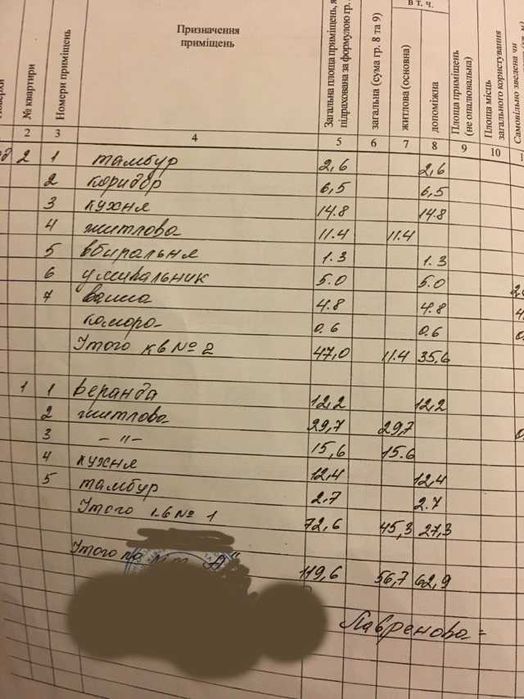 Призначення приміщень
№ квартири
Номери приміщень
Загальна площа приміщень,
підрахована за формулою гр.
в т. ч.
загальна (сума гр. 8 та 9)
житлова (основна)
допоміжна
Площа приміщень
(не опалювальна)
Площа місць
загального користування
Самовільно зведена чи
2 3 4 5 6 7 8 9 10
2 1 тамбур 2,6 2,6
2 коридор 6,5 6,5
3 кухня 14.8 14.8
4 житлова 11.4 11.4
5 вбиральня 1.3 1.3
6 умивальник 5.0 5.0
7 ванна 4.8 4.8
комора 0.6 0.6
Итого кв № 2 47,0 11.4 35,6
1 1 Веранда 12,2 12,2
2 житлова 29,7 29,7
3 – " – 15,6 15.6
4 кухня 12,4 12,4
5 тамбур 2.7 2.7
Итого № 1 72,6 45,3 27,3
Итого 119,6 56,7 62,9
Лавренова